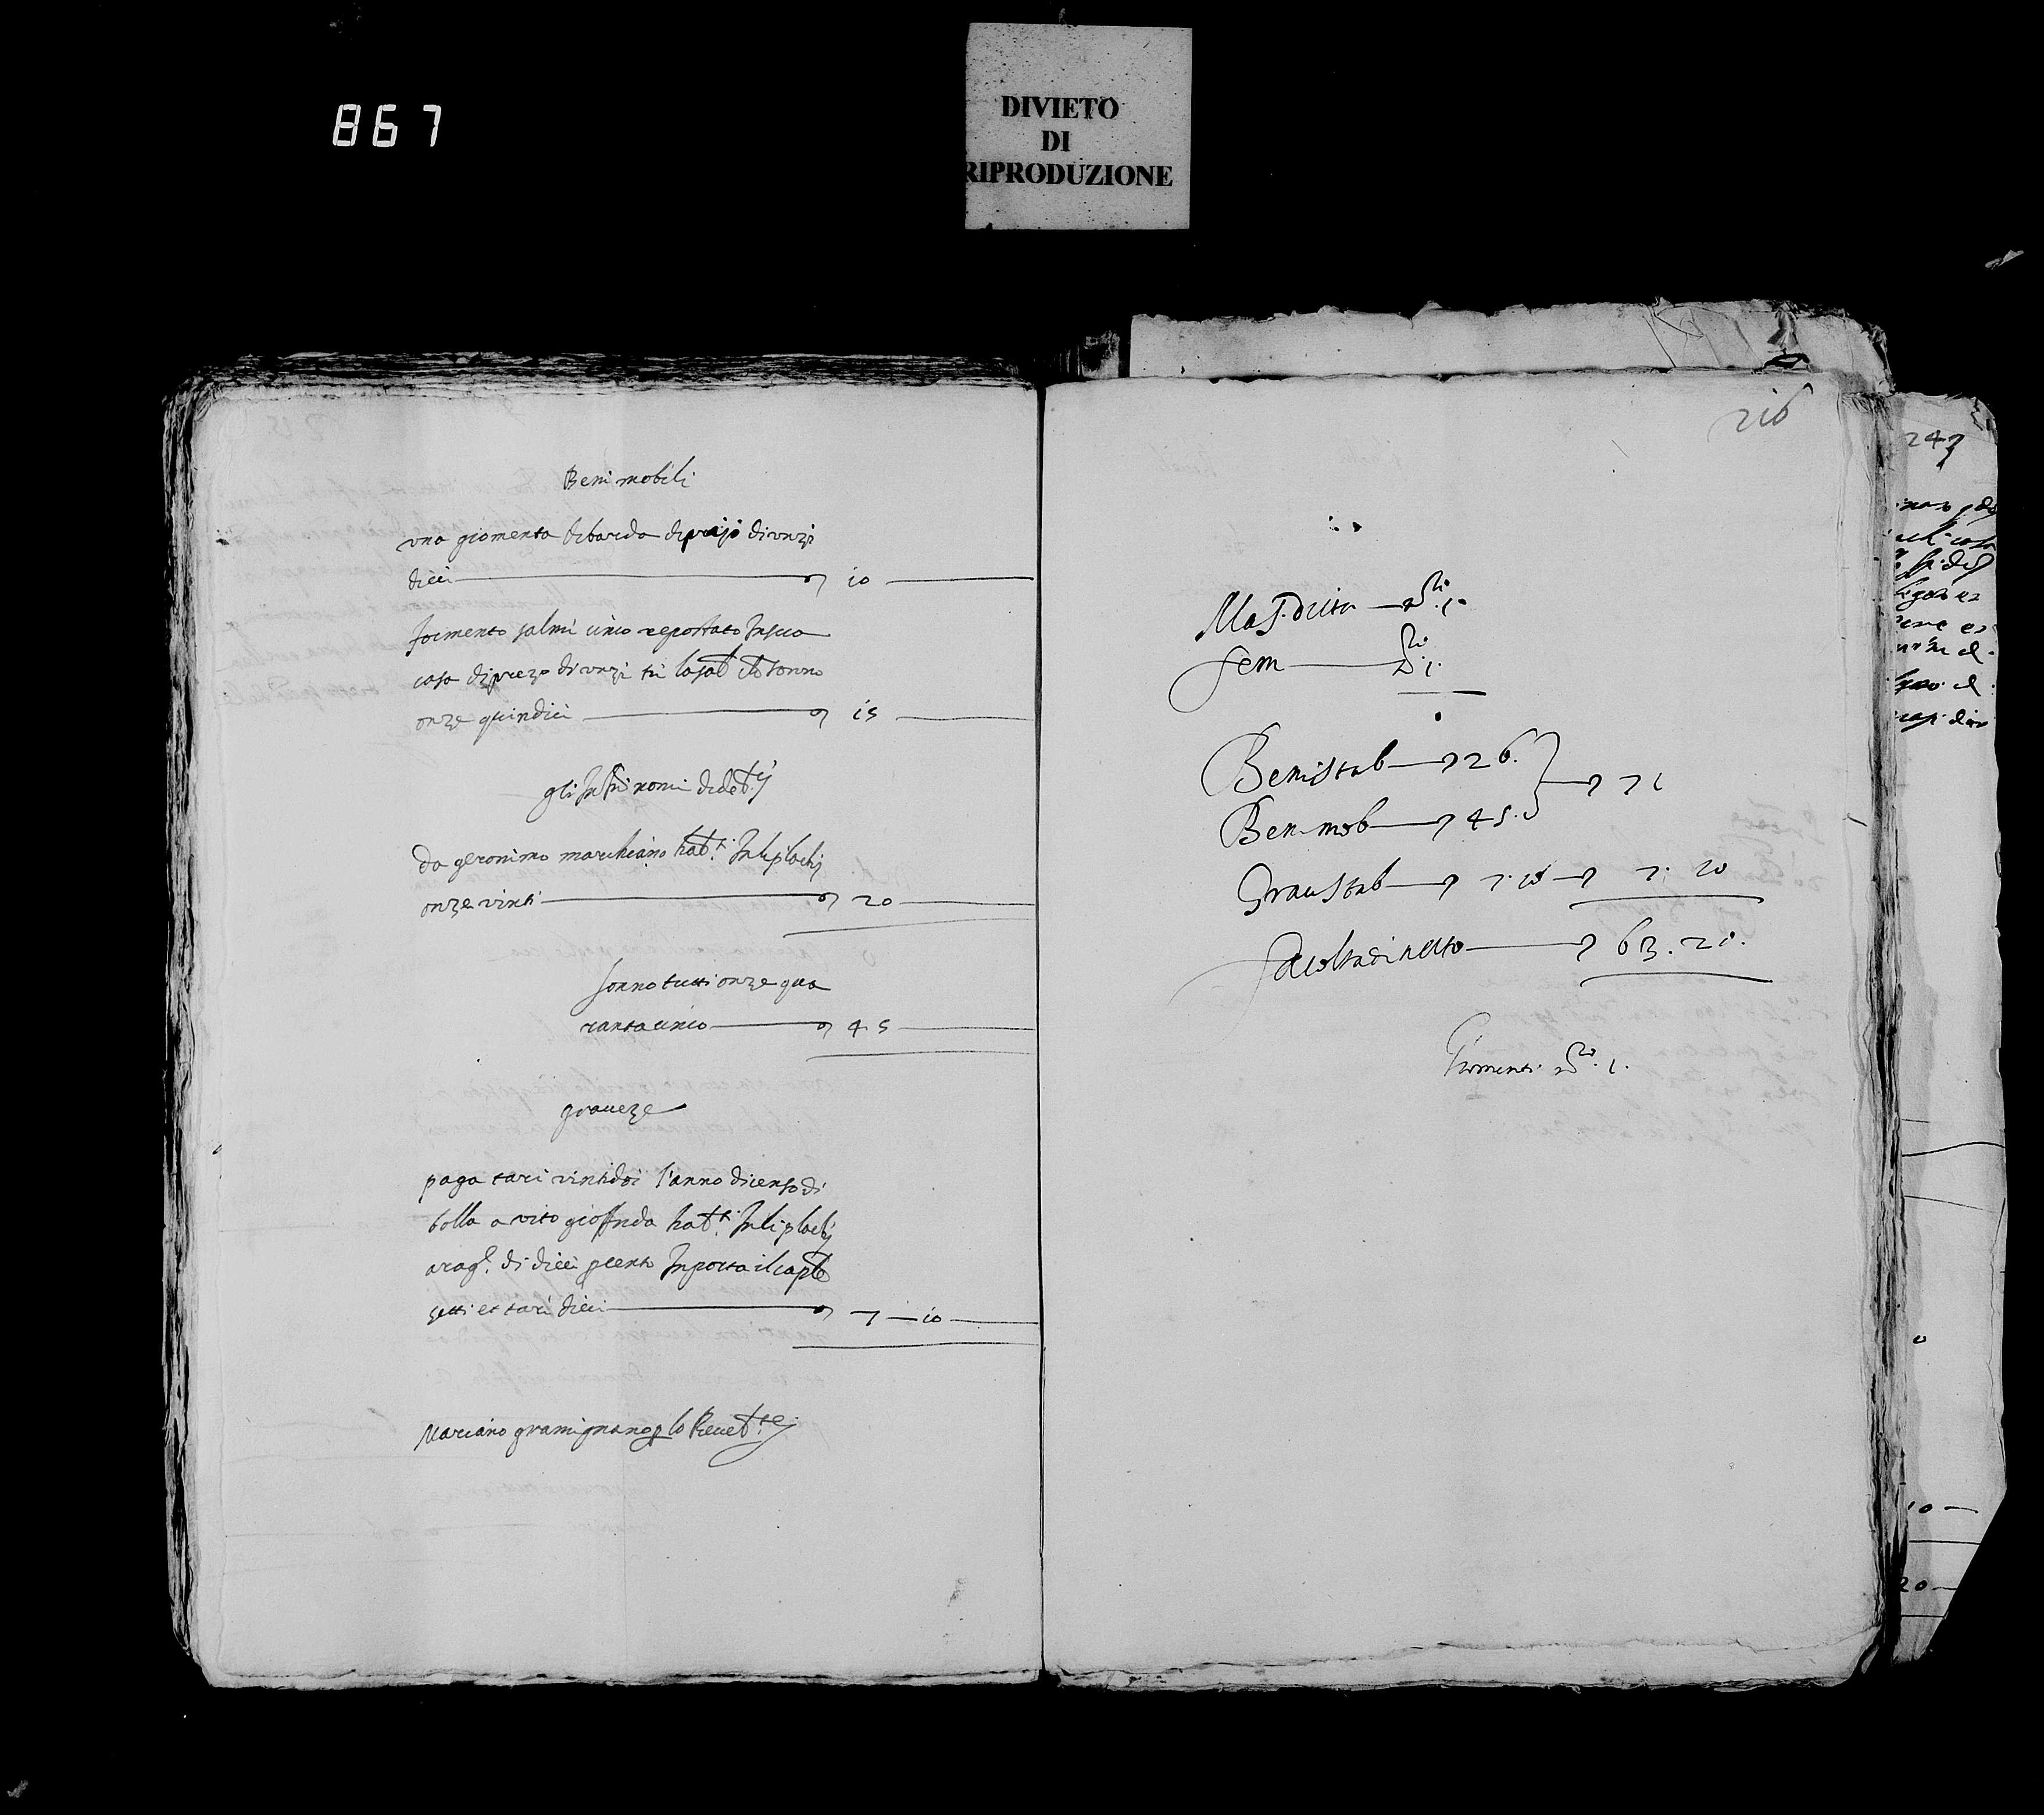 867
DIVIETO
DI
RIPRODUZIONE
Beni mobili
una giomenta di barda di prezo di unzi
dieci 10
formento salmi cinco repostato In sua
casa di prezo di unzi tri la salᵃ sonno
onze quindici 15
gli nomi di debᵗʲ
da geronimo marchiano habᵗⁱ In li placlij
onze vinti 20
sonno tutti onze qua
ranta cinco 45
graveze
paga tari vintidoi l'anno di censo di
bolla a vito gioffrida habᵗⁱ In li placlij
a ragᵉ di dieci p cento Inporta il caple
setti et tari dieci 7 — 10
Mariano gramignano p lo
216
Mas. di ditta 1.
Fem 1.
Beni stab 26.
71
Ben. mob 45.
Grav stab 7. 10 7. 10
Facoltadi netto 63. 20.
Giomenti 1.
247
10
20